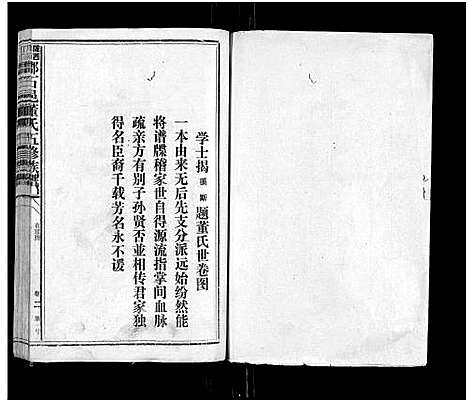 学士揭傒斯题董氏世卷图
一本由来无后先支分派远始纷然能
将谱牒稽家世自得源流指掌间血脉
疏亲方有别子孙贤否並相传君家独
得名臣裔千载芳名永不谖